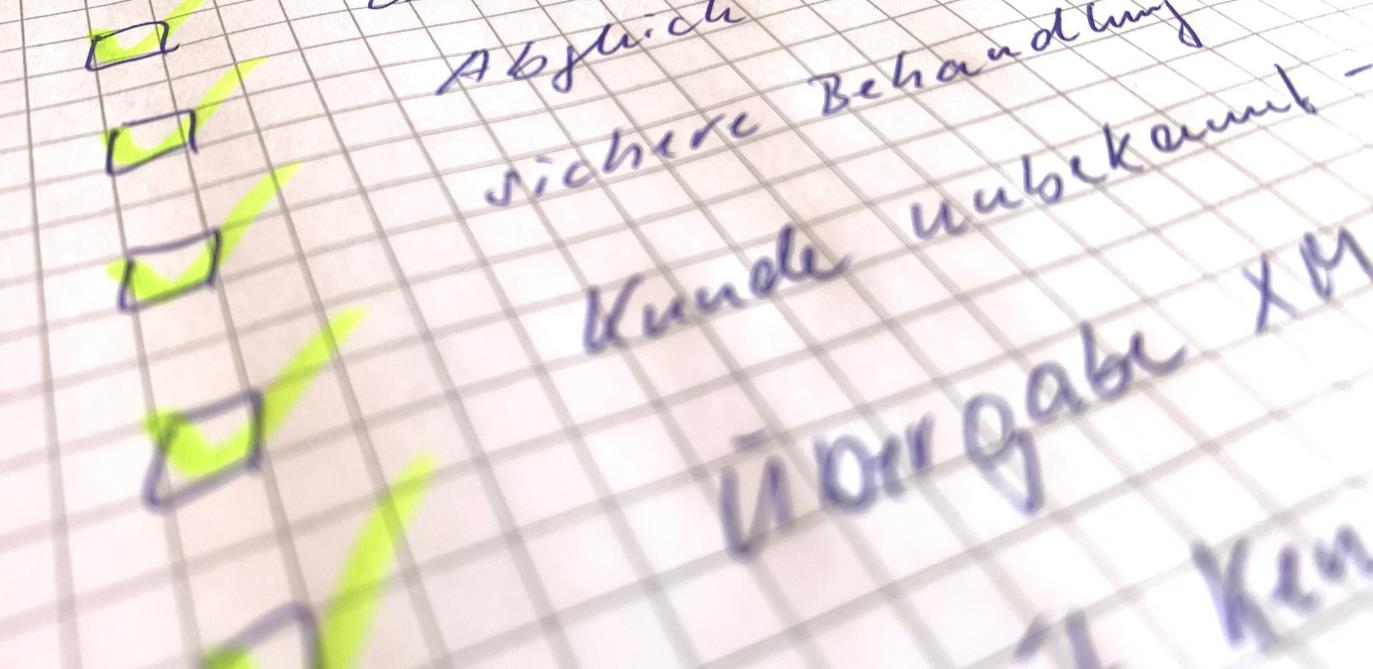 Abgleich
sichere Behandlung
Kunde unbekannt -
Übergabe XM
Ken